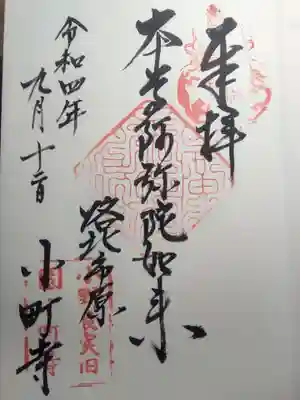 奉拝
本尊阿弥陀如来
洛北市原
小町寺
令和四年
九月十二日